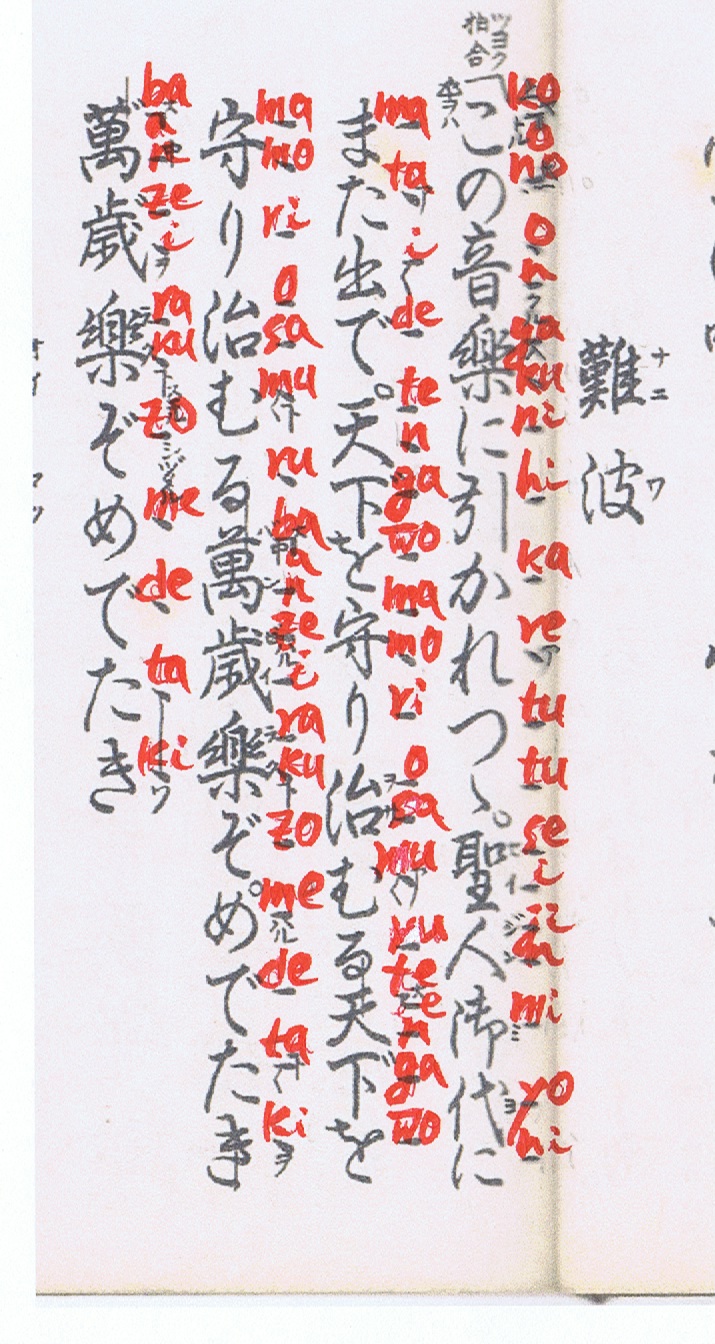 難波
ナニワ
ツヨク
拍合
この音樂に引かれつゝ。聖人御代に
ko o no o n ga ku ni hi ka re tu tu se i ji n mi yo ni
また出で。天下を守り治むる天下を
ma ta i de te n ga wo ma mo ri o sa mu ru te e n ga wo
守り治むる萬歳樂ぞめでたき
ma mo ri o sa mu ru ba a n ze i ra ku zo me de ta ki
萬歳樂ぞめでたき
ba a n ze i ra ku zo me de ta ki